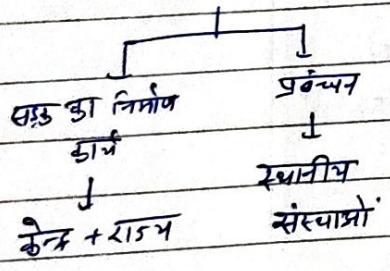 सड़क का निर्माण
कार्य
केन्द्र + राज्य
प्रबंधन
स्थानीय
संस्थाओं